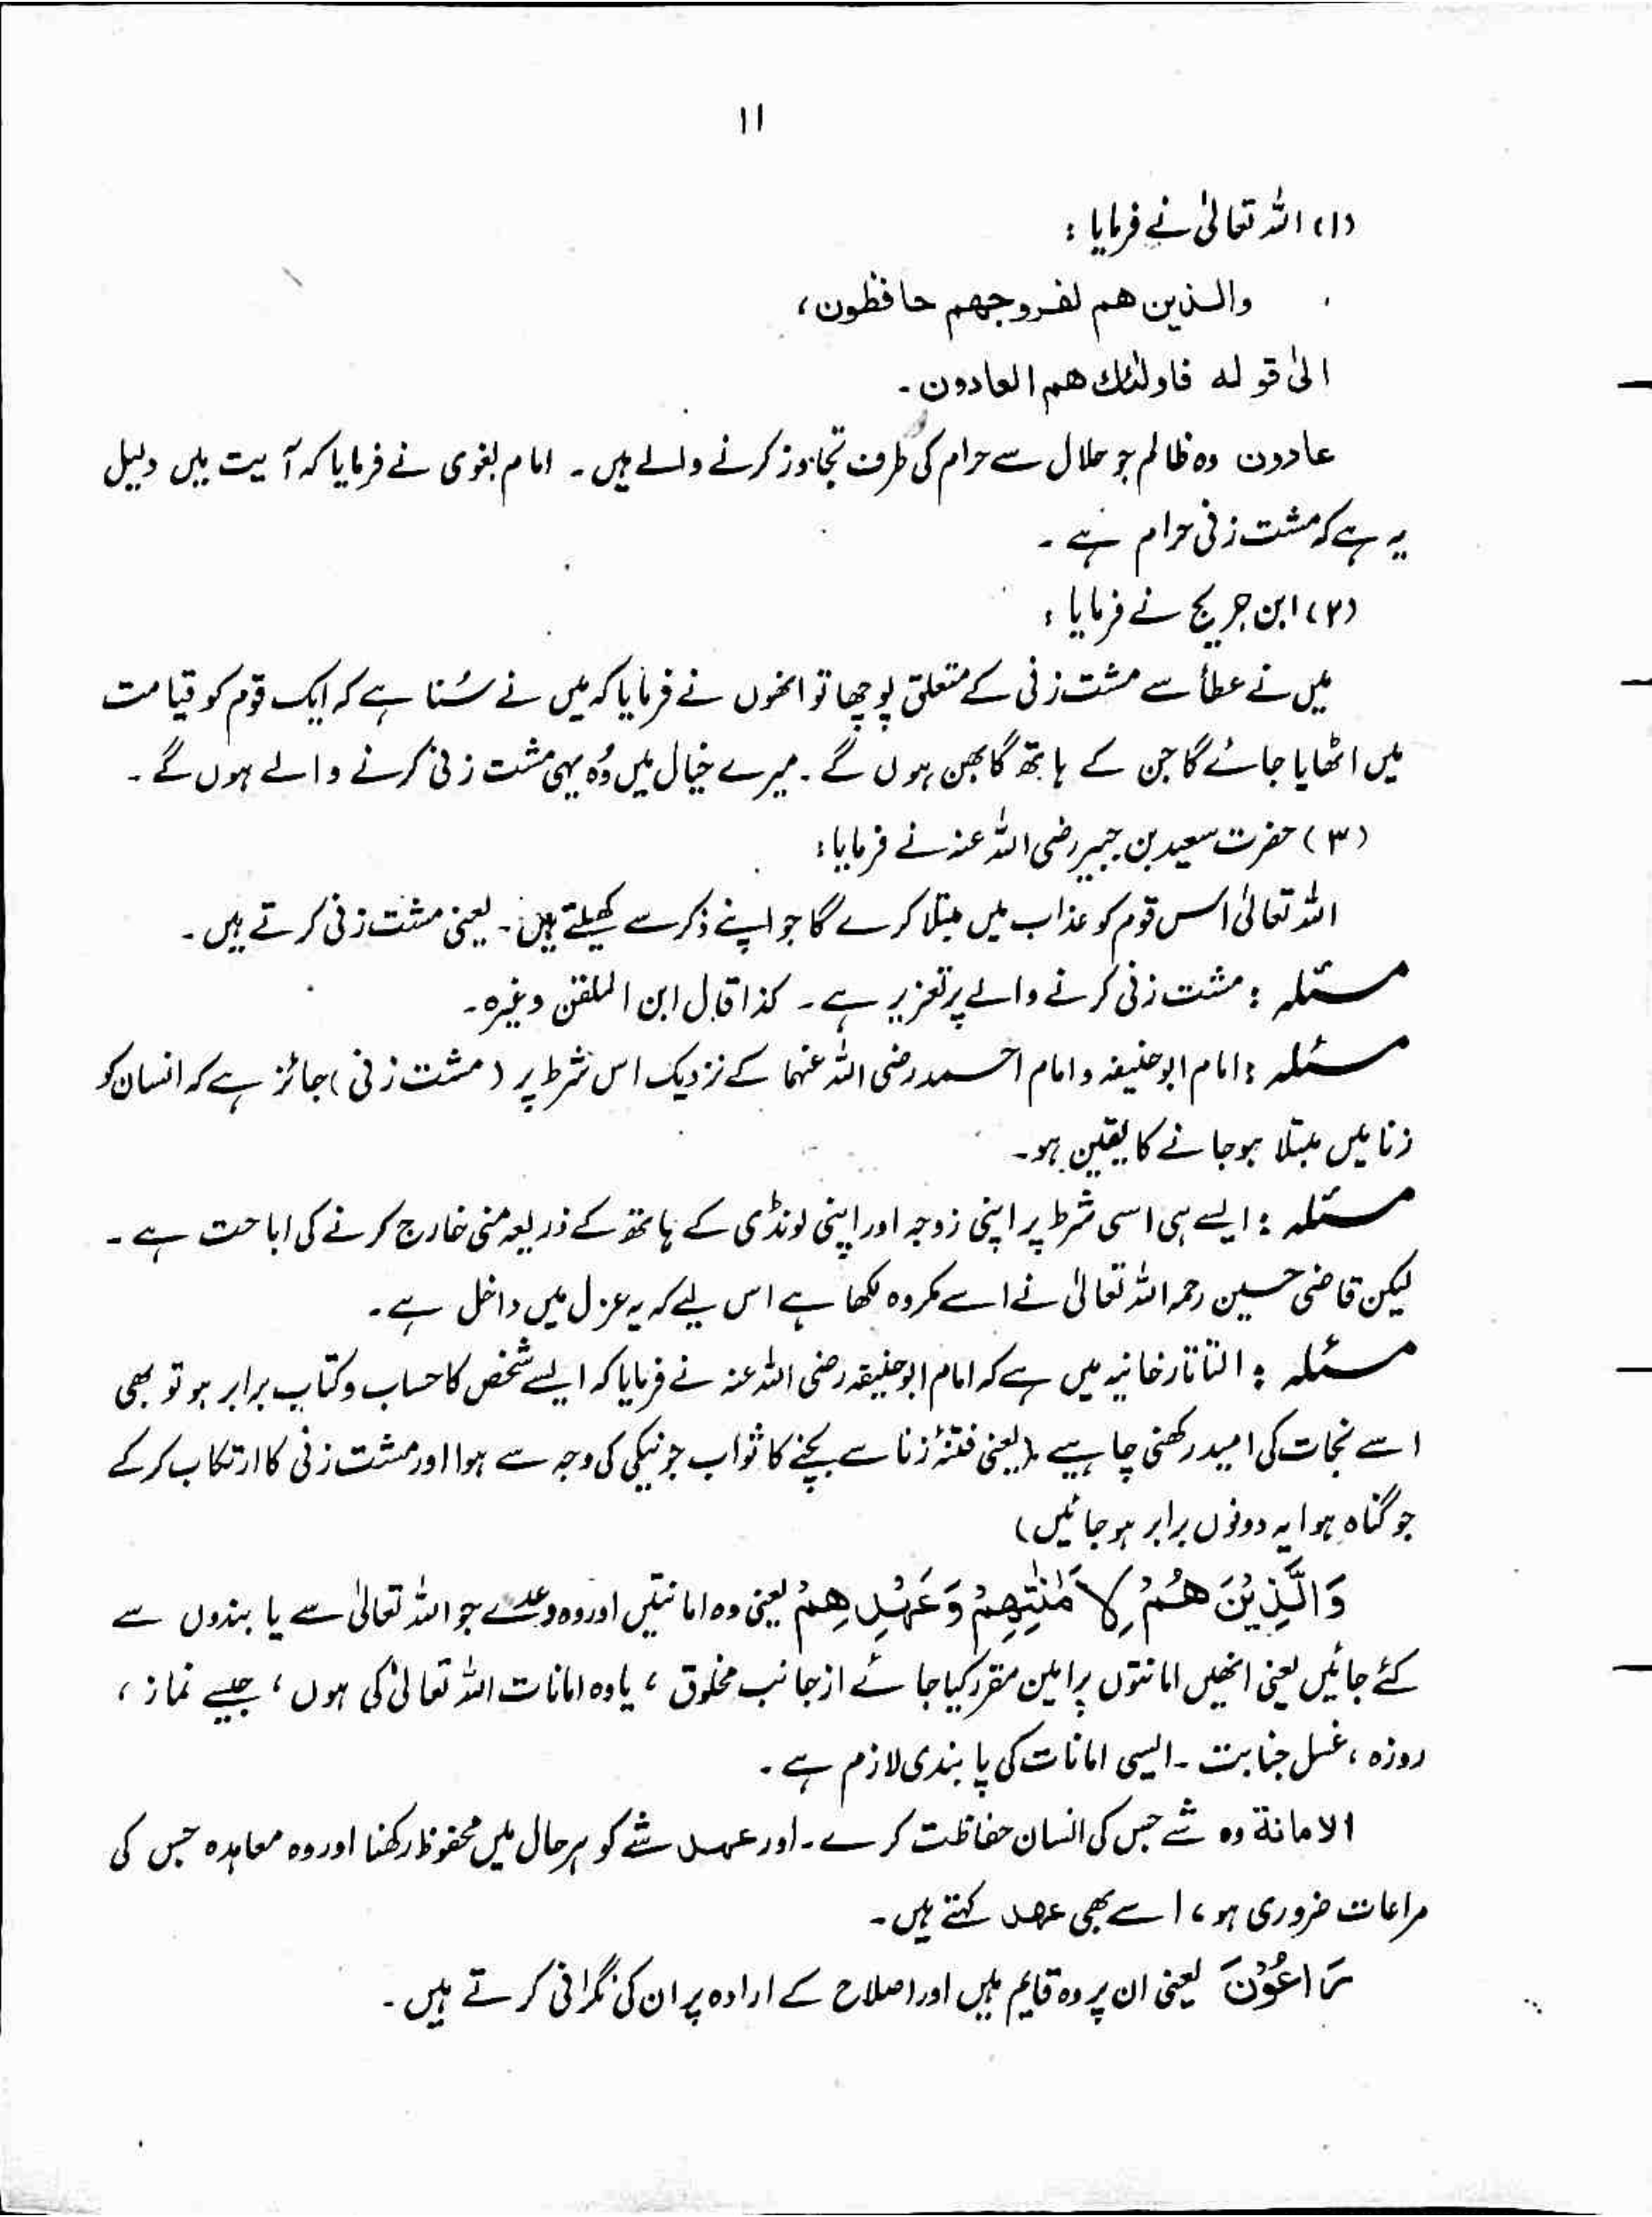 ۱۱
(۱) اللہ تعالیٰ نے فرمایا :
والذین ھم لفروجھم حافظون،
الیٰ قولہ فاولئك ھم العادون۔
عادون وہ ظالم جو حلال سے حرام کی طرف تجاوز کرنے والے ہیں۔ امام بغوی نے فرمایا کہ آیت میں دلیل
یہ ہے کہ مشت زنی حرام ہے۔
(۲) ابن جریج نے فرمایا :
میں نے عطأ سے مشت زنی کے متعلق پوچھا تو انھوں نے فرمایا کہ میں نے سُنا ہے کہ ایک قوم کو قیامت
میں اٹھایا جائے گا جن کے ہاتھ گابھن ہوں گے۔ میرے خیال میں وُہ یہی مشت زنی کرنے والے ہوں گے۔
(۳) حضرت سعید بن جبیر رضی اللہ عنہ نے فرمایا:
اللہ تعالیٰ اس قوم کو عذاب میں مبتلا کرے گا جو اپنے ذکر سے کھیلتے ہیں۔ یعنی مشت زنی کرتے ہیں۔
مسئلہ : مشت زنی کرنے والے پر تعزیر ہے۔ کذا قال ابن الملقن وغیرہ۔
مسئلہ : امام ابوحنیفہ و امام احمد رضی اللہ عنہما کے نزدیک اس شرط پر (مشت زنی) جائز ہے کہ انسان کو
زنا میں مبتلا ہوجانے کا یقین ہو۔
مسئلہ : ایسے ہی اسی شرط پر اپنی زوجہ اور اپنی لونڈی کے ہاتھ کے ذریعہ منی خارج کرنے کی اباحت ہے۔
لیکن قاضی حسین رحمہ اللہ تعالیٰ نے اسے مکروہ لکھا ہے اس لیے کہ یہ عزل میں داخل ہے۔
مسئلہ : التاتارخانیہ میں ہے کہ امام ابوحنیفہ رضی اللہ عنہ نے فرمایا کہ ایسے شخص کا حساب و کتاب برابر ہو تو بھی
اسے نجات کی امید رکھنی چاہیے (یعنی فتنۂ زنا سے بچنے کا ثواب جو نیکی کی وجہ سے ہوا اور مشت زنی کا ارتکاب کرکے
جو گناہ ہوا یہ دونوں برابر ہوجائیں)
وَالَّذِیْنَ ھُمْ لِاَمٰنٰتِھِمْ وَعَھْدِھِمْ یعنی وہ امانتیں اور وہ وعدے جو اللہ تعالیٰ سے یا بندوں سے
کئے جائیں یعنی انھیں امانتوں پر امین مقرر کیا جائے از جانب مخلوق ، یا وہ امانات اللہ تعالیٰ کی ہوں ، جیسے نماز ،
روزہ ، غسل جنابت ۔ ایسی امانات کی پابندی لازم ہے۔
الامانة وہ شے جس کی انسان حفاظت کرے۔ اور عہد شے کو ہر حال میں محفوظ رکھنا اور وہ معاہدہ جس کی
مراعات ضروری ہو ، اسے بھی عھد کہتے ہیں۔
رَاعُوْنَ یعنی ان پر وہ قایم ہیں اور اصلاح کے ارادہ پر ان کی نگرانی کرتے ہیں۔